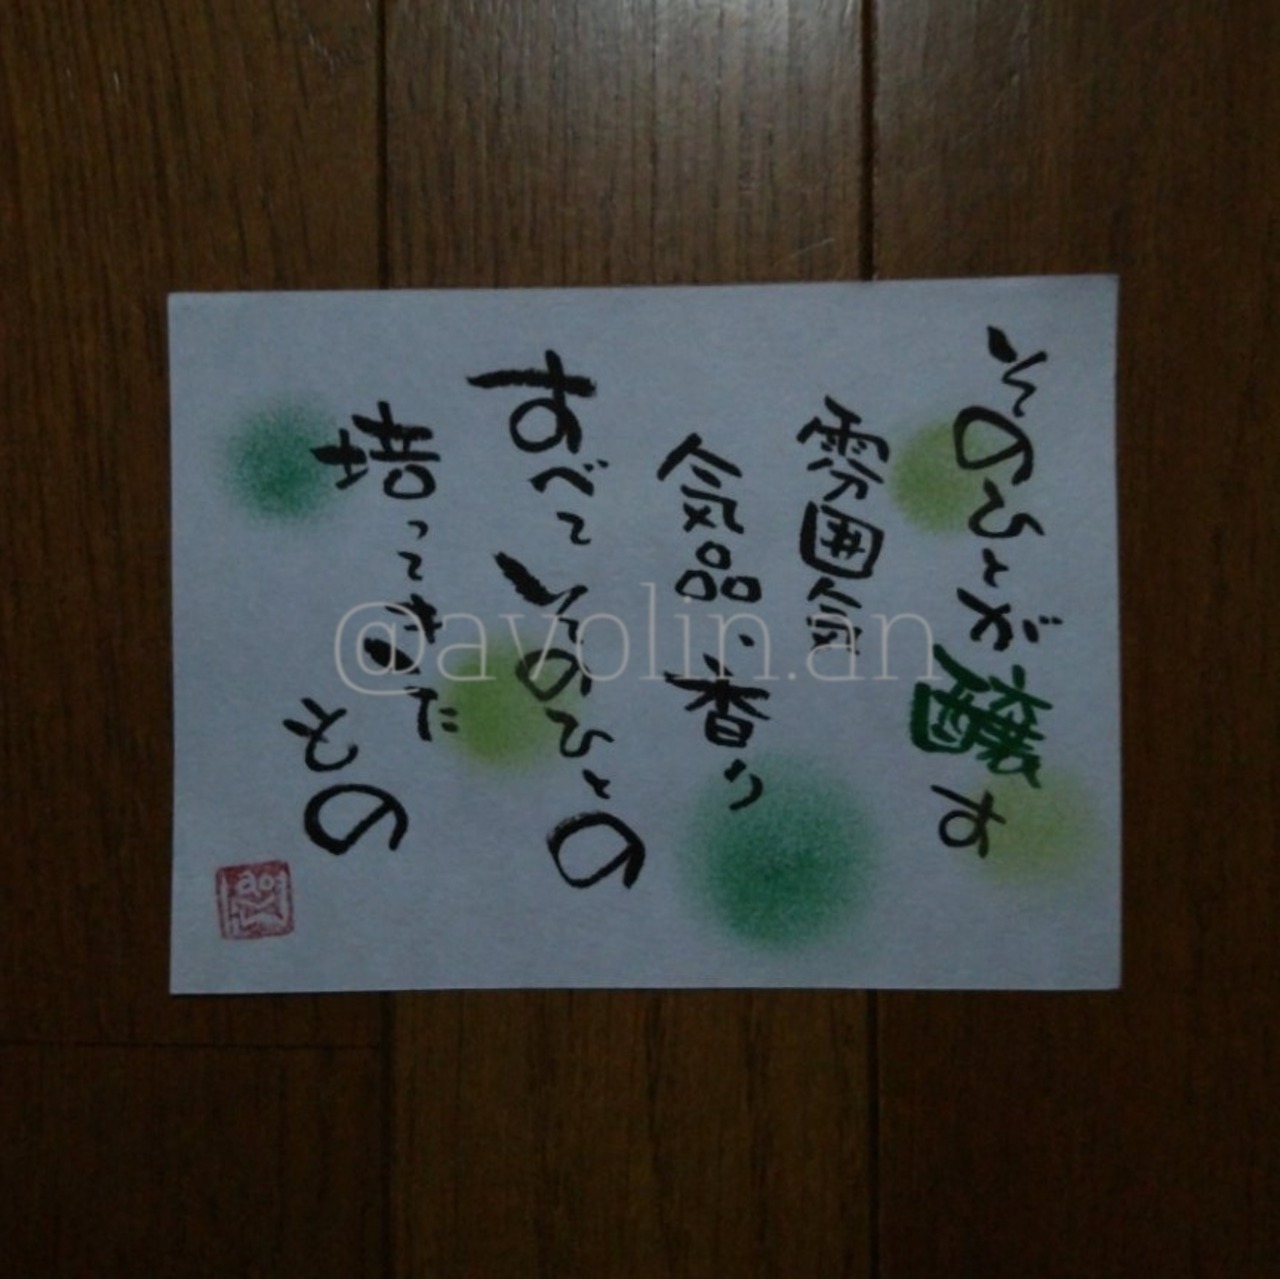 そのひとが醸す
雰囲気
気品、香り
すべてそのひとの
培ってきた
もの
@avolin.an